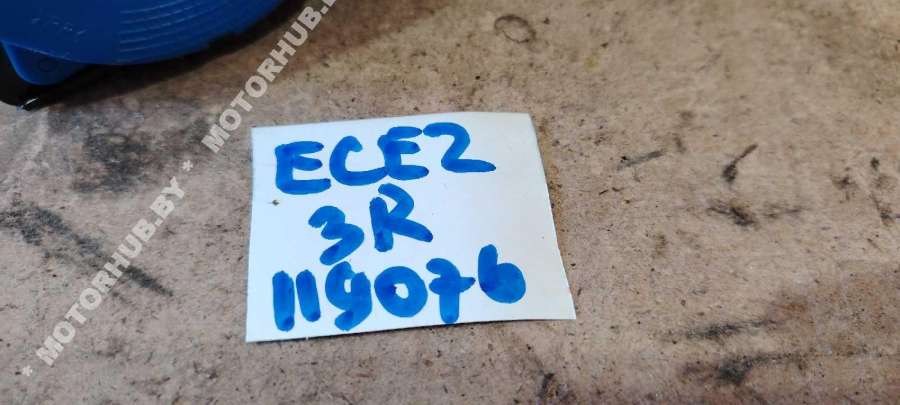 ECE2
3R
119076
* MOTORHUB.BY * MOTORHUB.BY